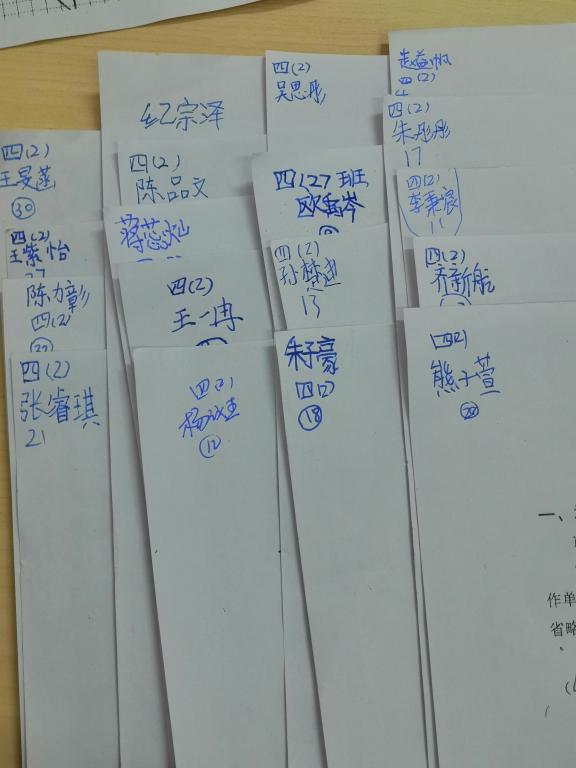 四(2)
王旻菡
30
四(2)
王紫怡
27
陈力彰
四(2)
四(2)
张睿琪
21
纪宗泽
四(2)
陈品文
蒋蕊灿
四(2)
王一冉
四(2)
12
四(2)
吴思彤
四(2)班
四(2)
13
朱子豪
四(2)
18
赵益帆
四(2)
四(2)
朱彤彤
17
四(2)
李秉宸
11
四(2)
齐新航
四(2)
熊子萱
20
一、
作单
省略